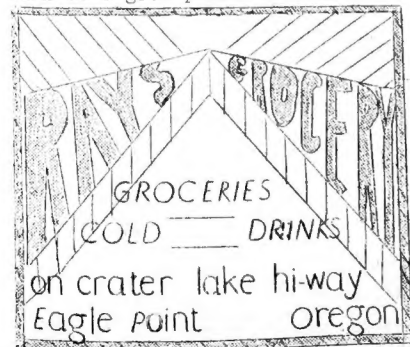 RAYS GROCERY
GROCERIES
COLD DRINKS
on crater lake hi-way
Eagle Point oregon